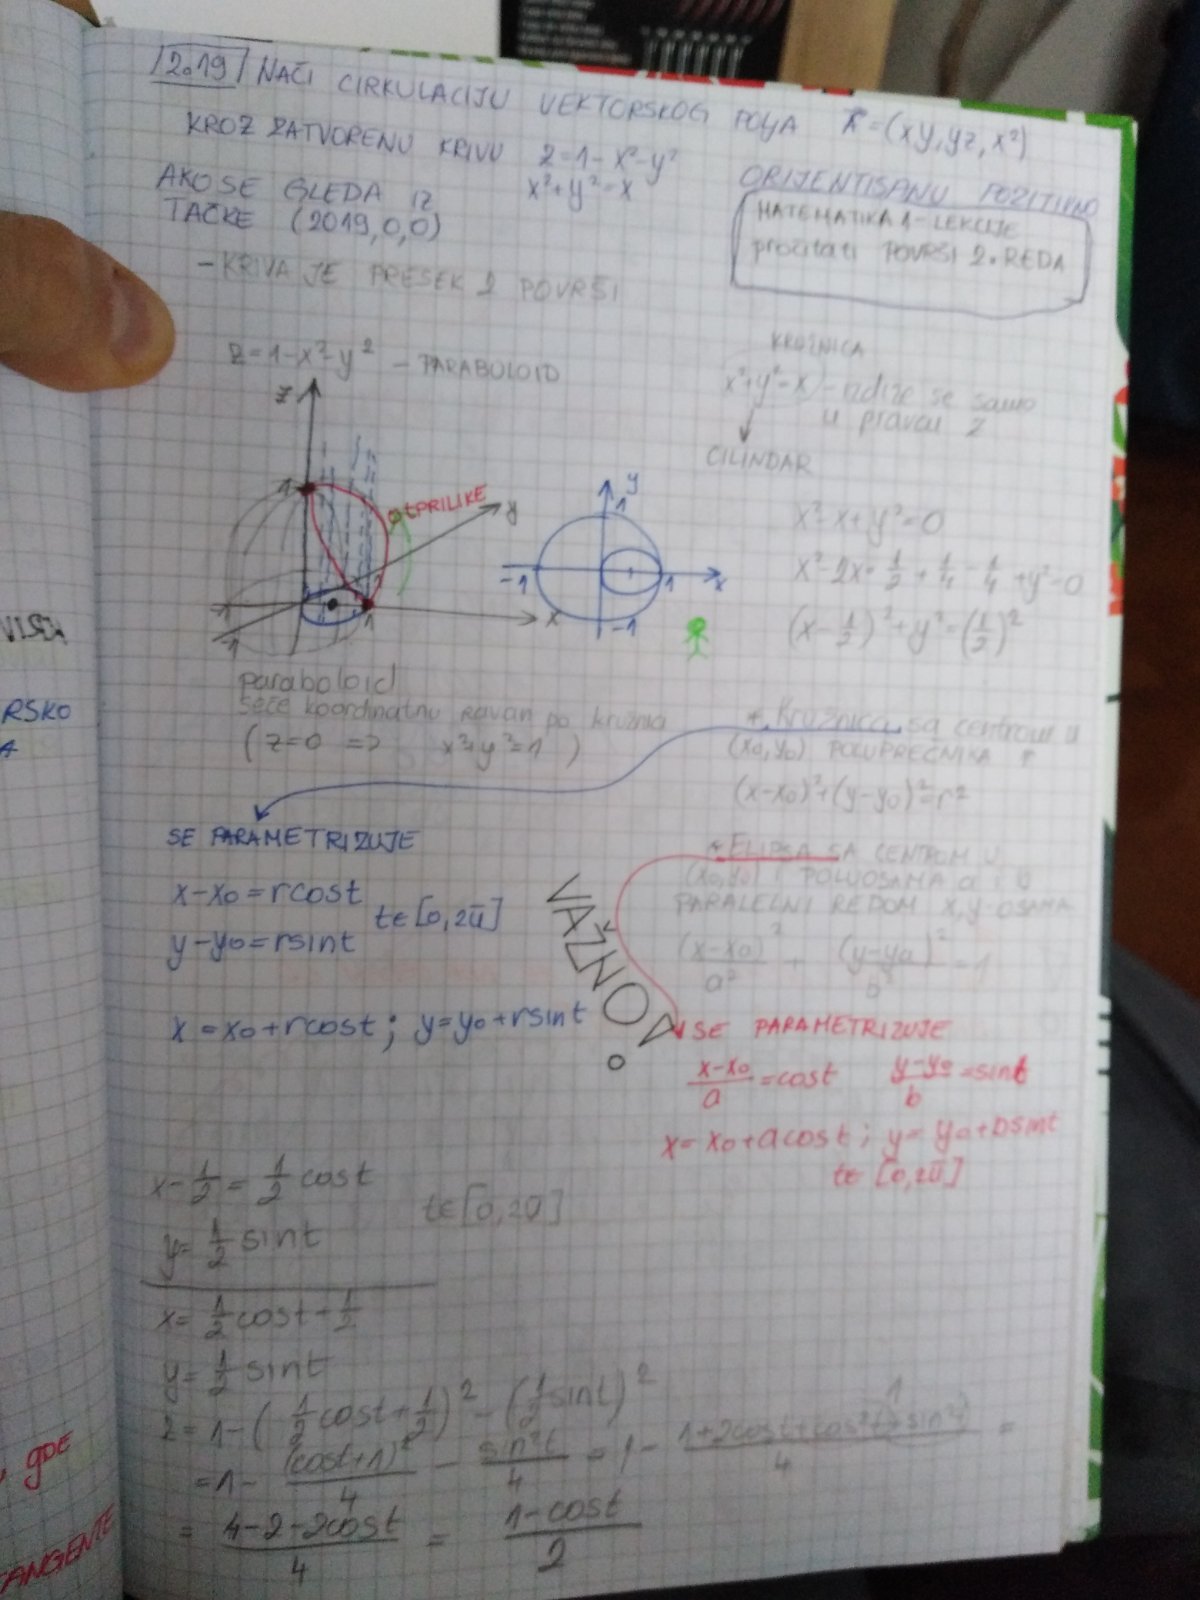 2.19 NAĆI CIRKULACIJU VEKTORSKOG POLJA A⃗=(xy, yz, x²)
KROZ ZATVORENU KRIVU z=1-x²-y²
x²+y²=x
ORIJENTISANU POZITIVNO
AKO SE GLEDA IZ
TAČKE (2019,0,0)
MATEMATIKA 1 - LEKCIJE
pročitati POVRŠI 2. REDA
- KRIVA JE PRESEK 2 POVRŠI
z=1-x²-y² - PARABOLOID
KRUŽNICA
x²+y²=x - izdiže se samo
u pravcu z
CILINDAR
z
1
OTPRILIKE
y
x
1
-1
-1
y
1
-1
1
x
-1
x²-x+y²=0
x²-2x·1/2+1/4-1/4+y²=0
(x-1/2)²+y²=(1/2)²
paraboloid
seče koordinatnu ravan po kružnici
(z=0 => x²+y²=1)
* Kružnica sa centrom u
(x₀,y₀) POLUPREČNIKA r
(x-x₀)²+(y-y₀)²=r²
SE PARAMETRIZUJE
x-x₀=rcost
y-y₀=rsint
t∈[0,2π]
x=x₀+rcost; y=y₀+rsint
VAŽNO!
* ELIPSA SA CENTROM U
(x₀,y₀) i POLUOSAMA a i b
PARALELNI REDOM X,Y OSAMA
(x-x₀)²/a² + (y-y₀)²/b² =1
SE PARAMETRIZUJE
x-x₀/a=cost y-y₀/b=sint
x=x₀+acost; y=y₀+bsint
t∈[0,2π]
x-1/2=1/2 cost
y=1/2 sint
t∈[0,2π]
x=1/2 cost+1/2
y=1/2 sint
z=1-(1/2 cost+1/2)²-(1/2 sint)²
=1-(cost+1)²/4-sin²t/4=1-1+2cost+cos²t+sin²t/4=
1
=4-2-2cost/4=1-cost/2
RSKO
, gde
TANGENTE